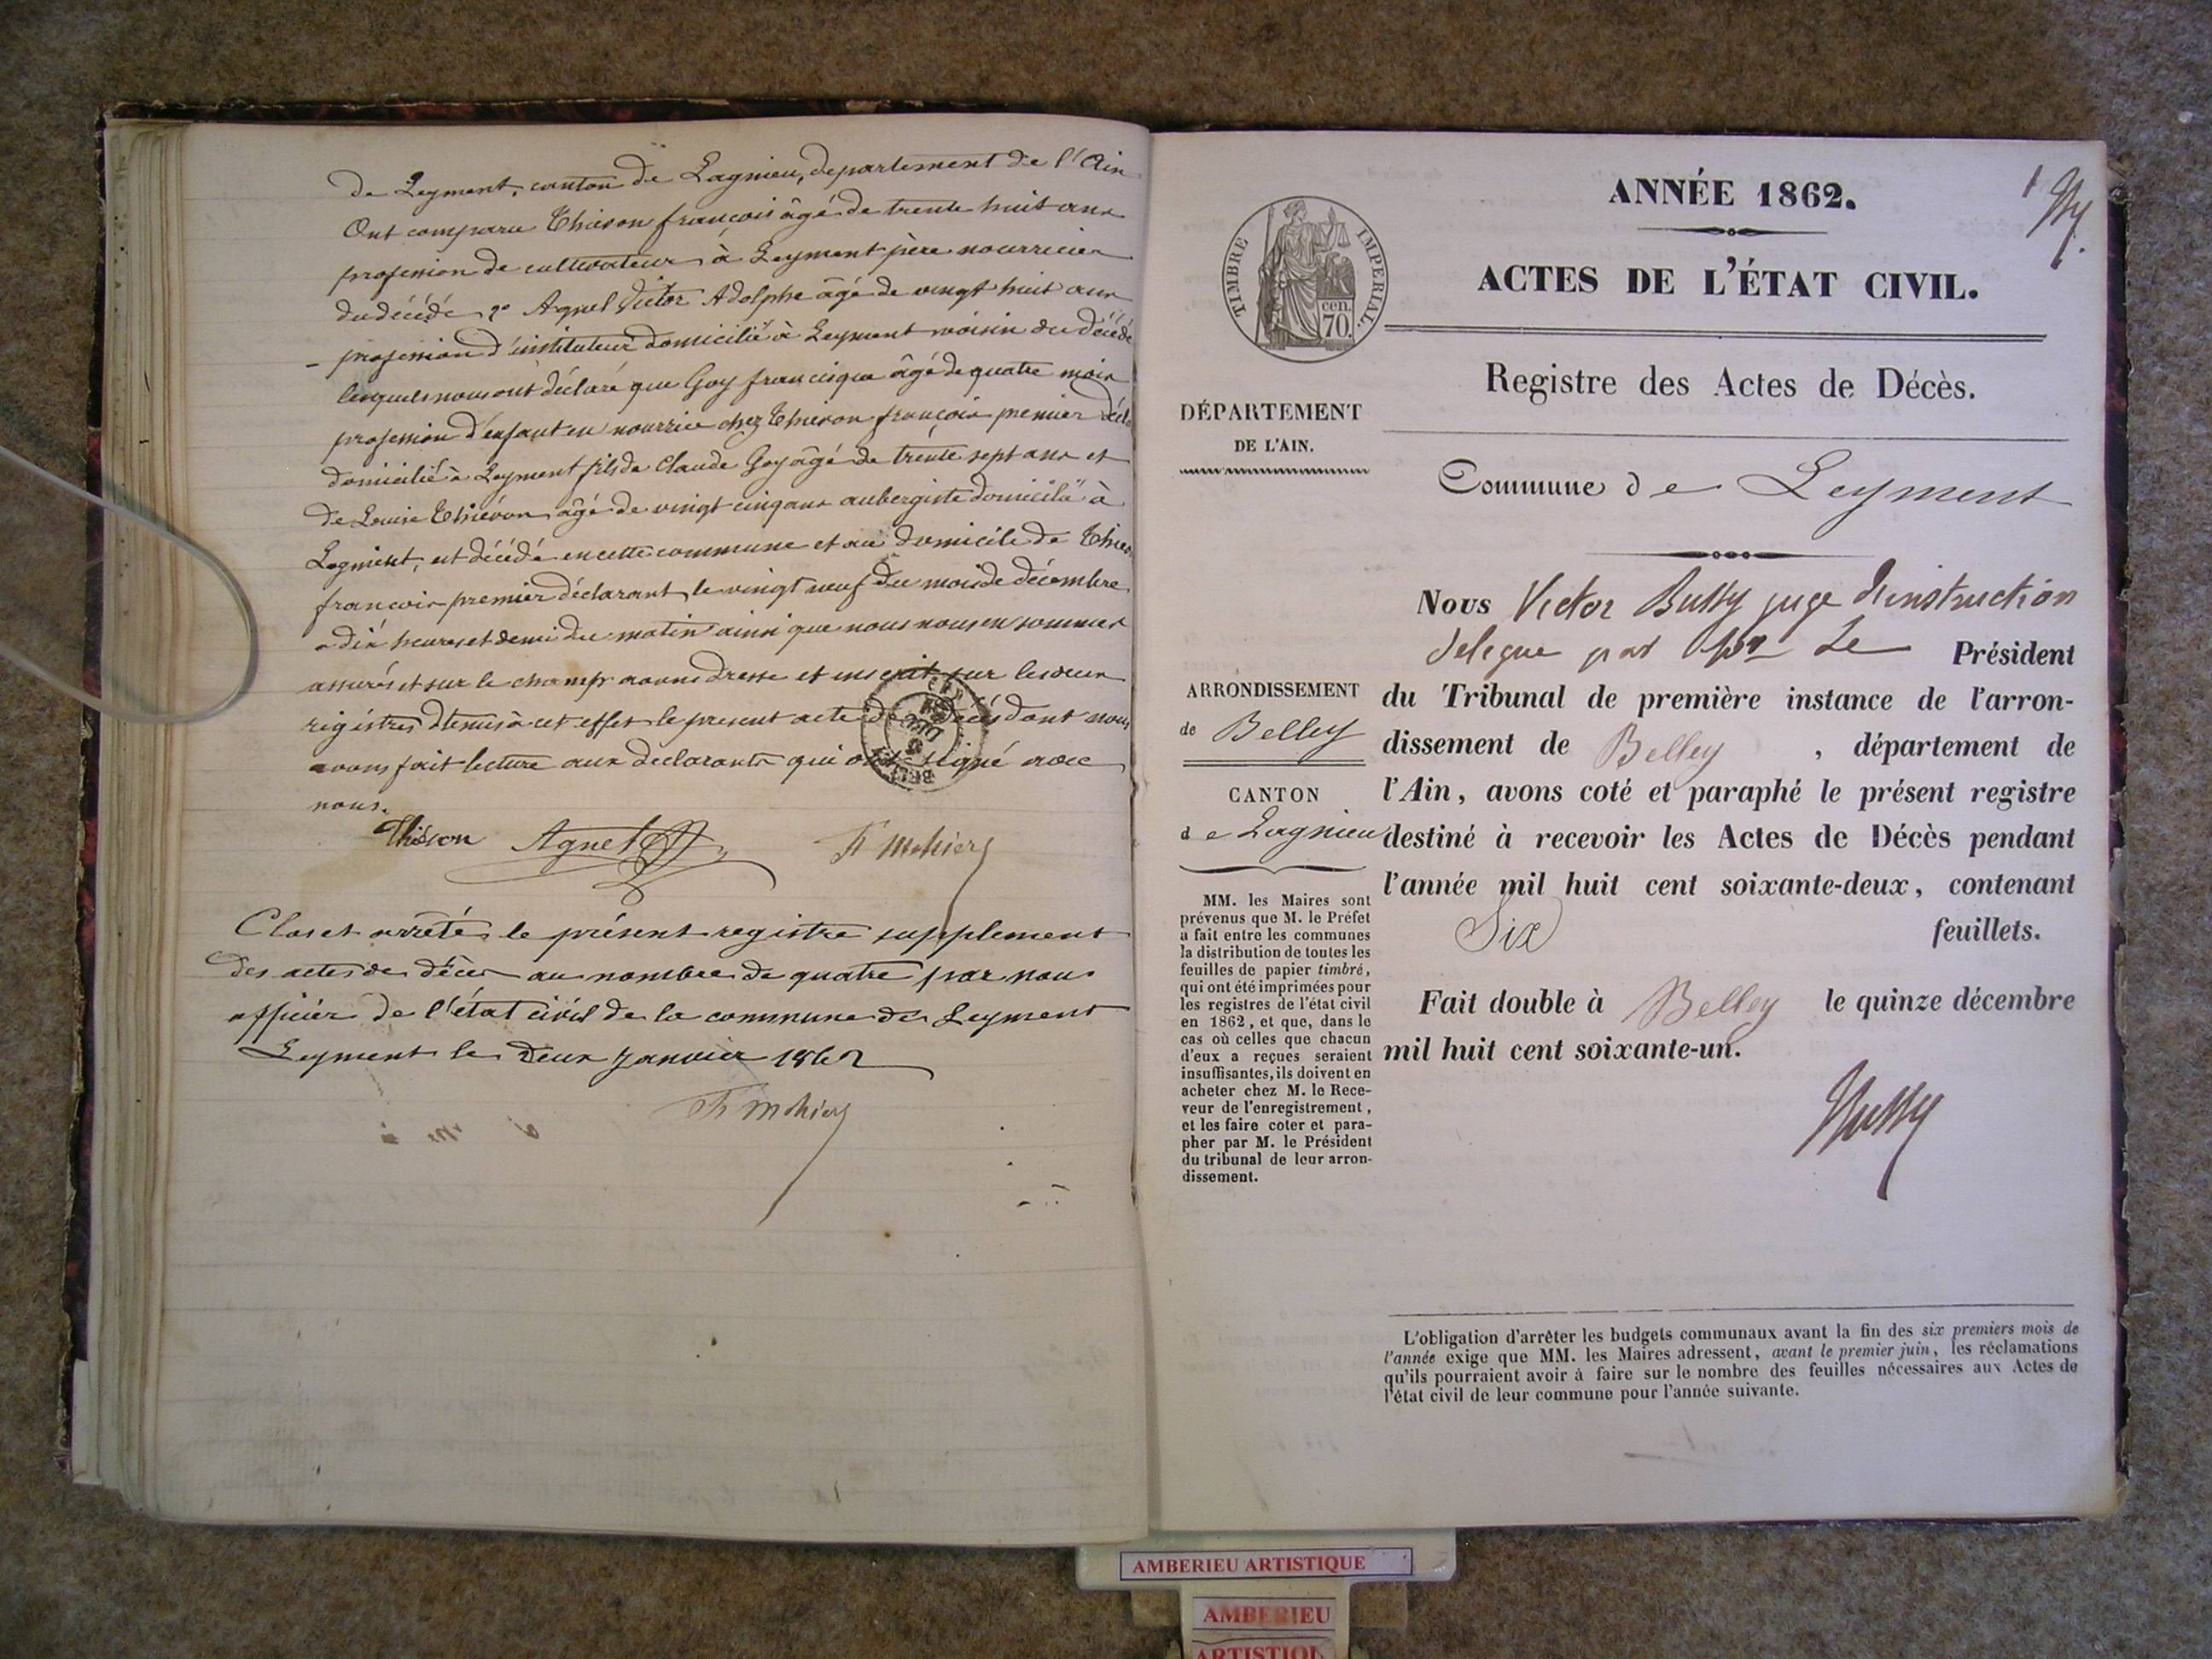 de Leyment, canton de Lagnieu, departement de l'Ain
Ont comparu Thieson françois âgé de trente huit ans
profession de cultivateur à Leyment père nourricier
du décédé 2º Agnel Victor Adolphe âgé de vingt huit ans
profession d'instituteur domicilié à Leyment voisin du décédé
lesquels nous ont déclaré que Goy francisque âgé de quatre mois
profession d'enfant en nourrice chez Thieson françois premier décla
domicilié à Leyment fils de Claude Goy âgé de trente sept ans et
de Louise âgé de vingt cinq ans aubergiste domicilié à
est décédé en cette commune et au domicile de
françois premier déclarant le vingt neuf du mois de décembre
a dix heures et demi du matin ainsi que nous nous en sommes
assurés et sur le champ avons dresse et inscrit sur les deux
registres à cet effet le present acte de décès dont nous
avons fait lecture aux declarants qui ont signé avec
nous.
Thieson Agnel
Clos et arrêté le présent registre supplement
des actes de décès au nombre de quatre par nous
officier de l'état civil de la commune de Leyment
Leyment le deux Janvier 1862
1
ANNÉE 1862.
ACTES DE L'ÉTAT CIVIL.
TIMBRE IMPERIAL.
cen.
70.
Registre des Actes de Décès.
DÉPARTEMENT
DE L'AIN.
Commune de Leyment
Nous Victor Bussy juge d'instruction
delegue par Mr Le Président
du Tribunal de première instance de l'arron-
dissement de Belley , département de
l'Ain, avons coté et paraphé le présent registre
destiné à recevoir les Actes de Décès pendant
l'année mil huit cent soixante-deux, contenant
Six feuillets.
Fait double à Belley le quinze décembre
mil huit cent soixante-un.
Bussy
ARRONDISSEMENT
de Belley
CANTON
de Lagnieu
MM. les Maires sont
prévenus que M. le Préfet
a fait entre les communes
la distribution de toutes les
feuilles de papier timbré,
qui ont été imprimées pour
les registres de l'état civil
en 1862, et que, dans le
cas où celles que chacun
d'eux a reçues seraient
insuffisantes, ils doivent en
acheter chez M. le Rece-
veur de l'enregistrement,
et les faire coter et para-
pher par M. le Président
du tribunal de leur arron-
dissement.
L'obligation d'arrêter les budgets communaux avant la fin des six premiers mois de
l'année exige que MM. les Maires adressent, avant le premier juin, les réclamations
qu'ils pourraient avoir à faire sur le nombre des feuilles nécessaires aux Actes de
l'état civil de leur commune pour l'année suivante.
AMBERIEU ARTISTIQUE
AMBERIEU